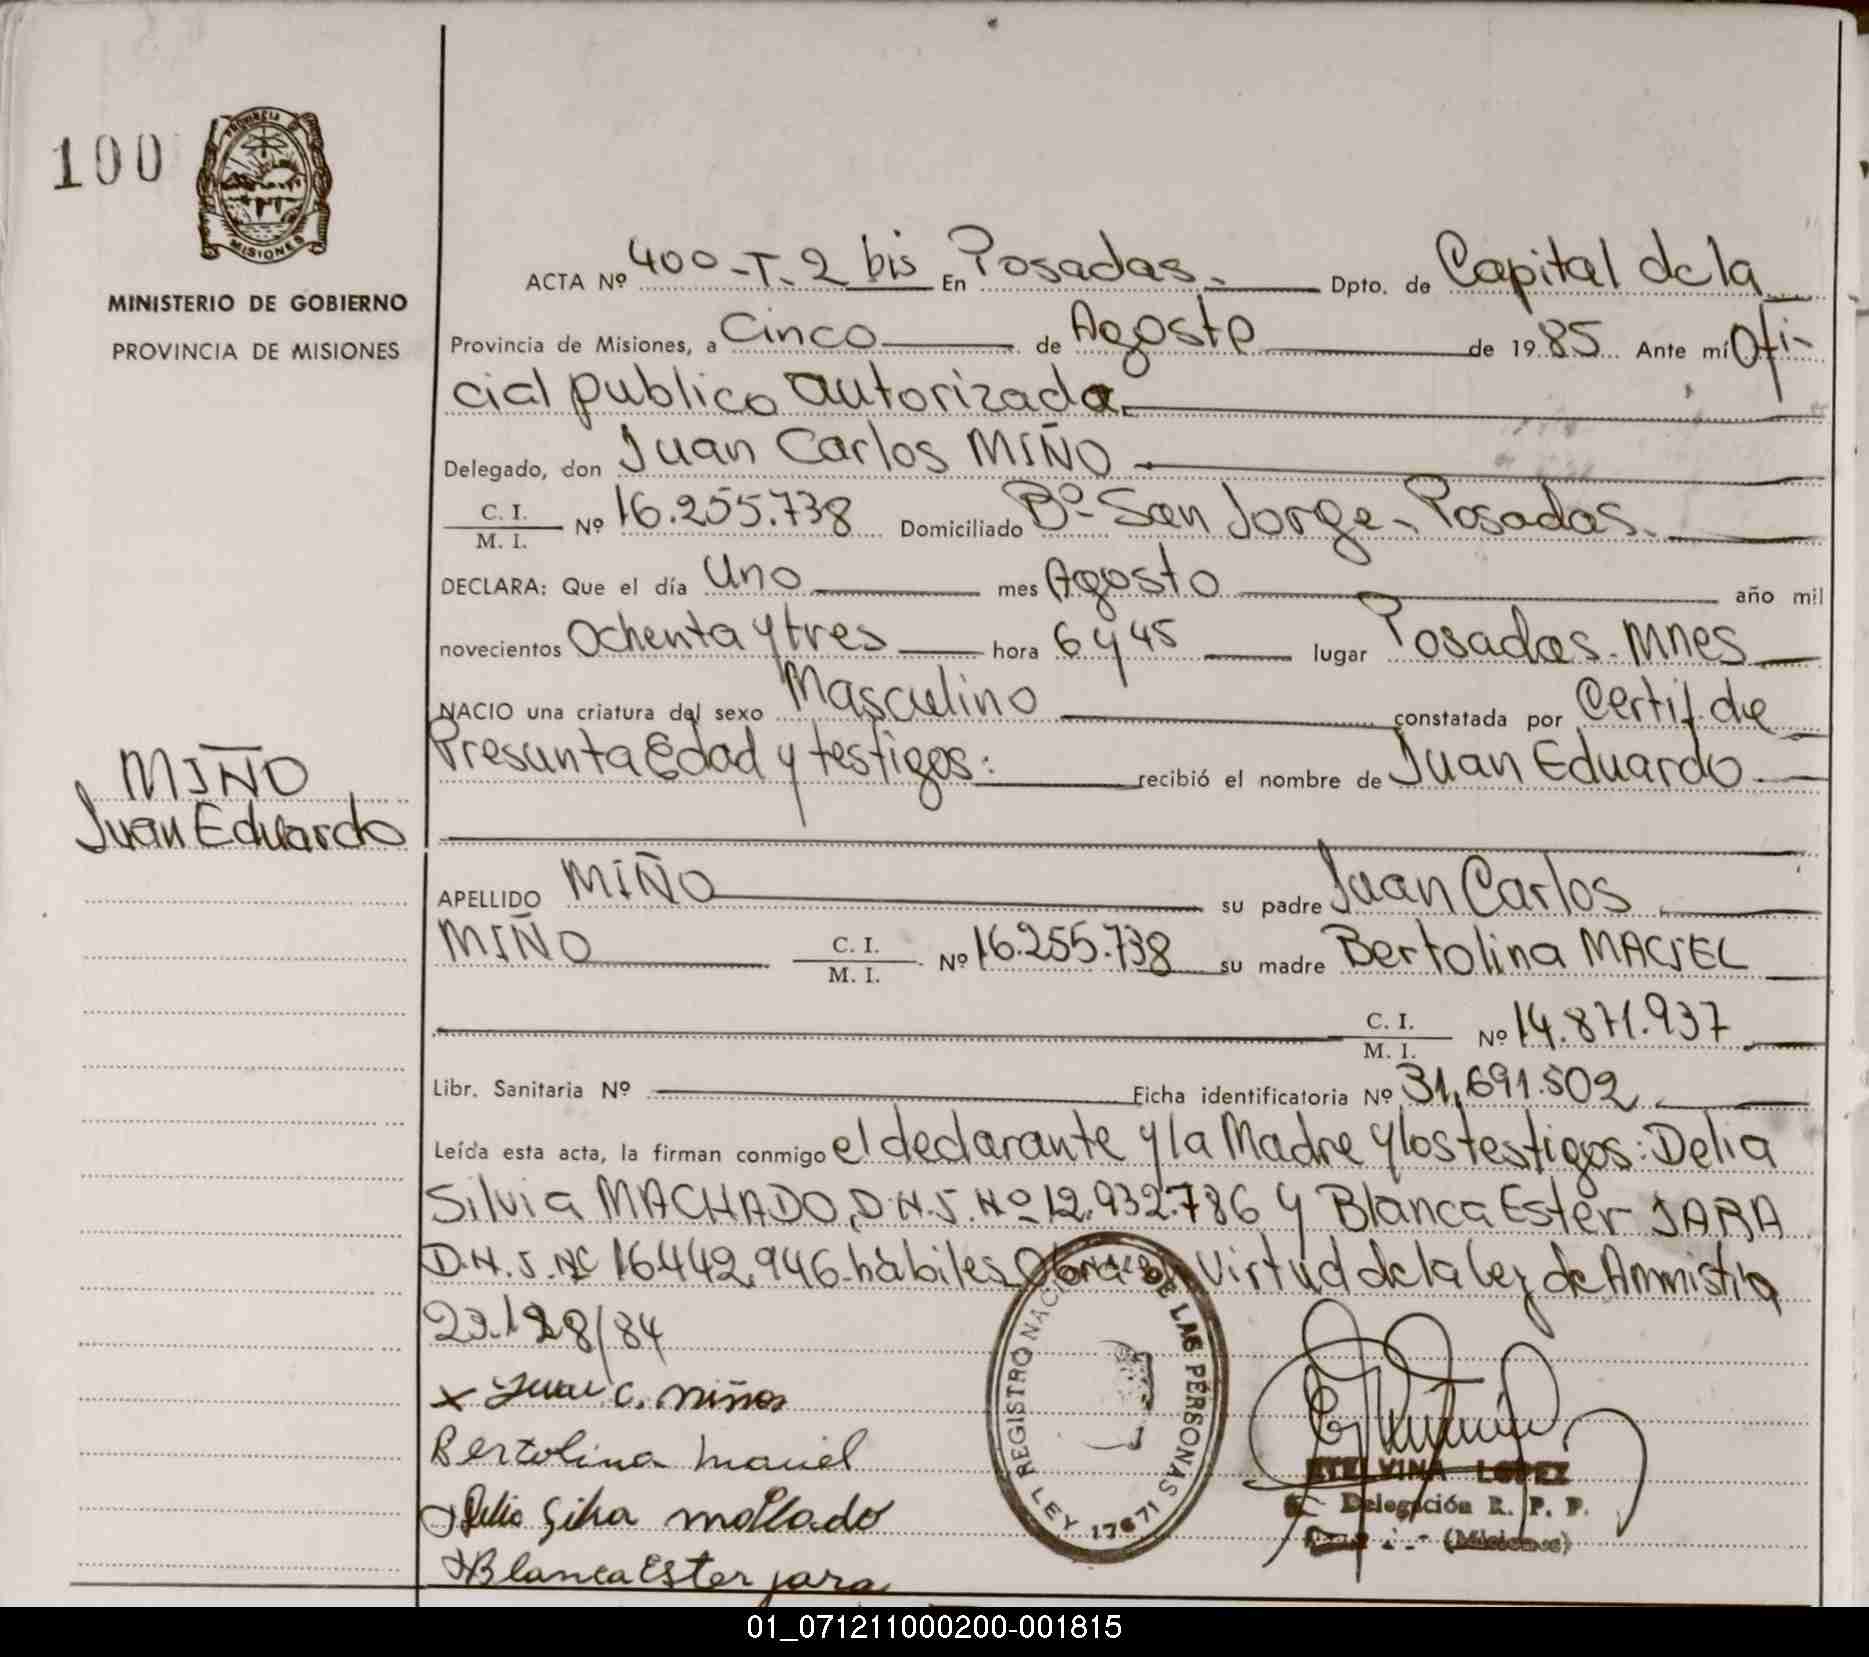 100
PROVINCIA DE
MISIONES
MINISTERIO DE GOBIERNO
PROVINCIA DE MISIONES
ACTA Nº 400-T-2 bis En Posadas. Dpto. de Capital de la
Provincia de Misiones, a Cinco de Agosto de 1985 Ante mí Ofi-
cial publico autorizada.
Delegado, don Juan Carlos MIÑO
C. I.
M. I. Nº 16.255.738 Domiciliado Bº San Jorge - Posadas.
DECLARA: Que el día Uno mes Agosto año mil
novecientos Ochenta y tres hora 6 y 45 lugar Posadas. Mnes
NACIO una criatura del sexo Masculino constatada por Certif. de
Presunta Edad y testigos: recibió el nombre de Juan Eduardo
MIÑO
Juan Eduardo
APELLIDO MIÑO su padre Juan Carlos
MIÑO C. I.
M. I. Nº 16.255.738 su madre Bertolina MACIEL
C. I.
M. I. Nº 14.871.937
Libr. Sanitaria Nº Ficha identificatoria Nº 31.691.502
Leída esta acta, la firman conmigo el declarante y la Madre y los testigos: Delia
Silvia MACHADO, D.N.I. Nº 12.932.786 y Blanca Ester JARA
D.N.I. Nº 16.442.946 habiles. Obra en Virtud de la Ley de Amnistia
23.128/84
x Juan C. miño
Bertolina Maciel
Blanca Ester jara
REGISTRO NACIONAL DE LAS PERSONAS
LEY 17671
ETELVINA LOPEZ
Delegación R. P. P.
(Misiones)
01_071211000200-001815